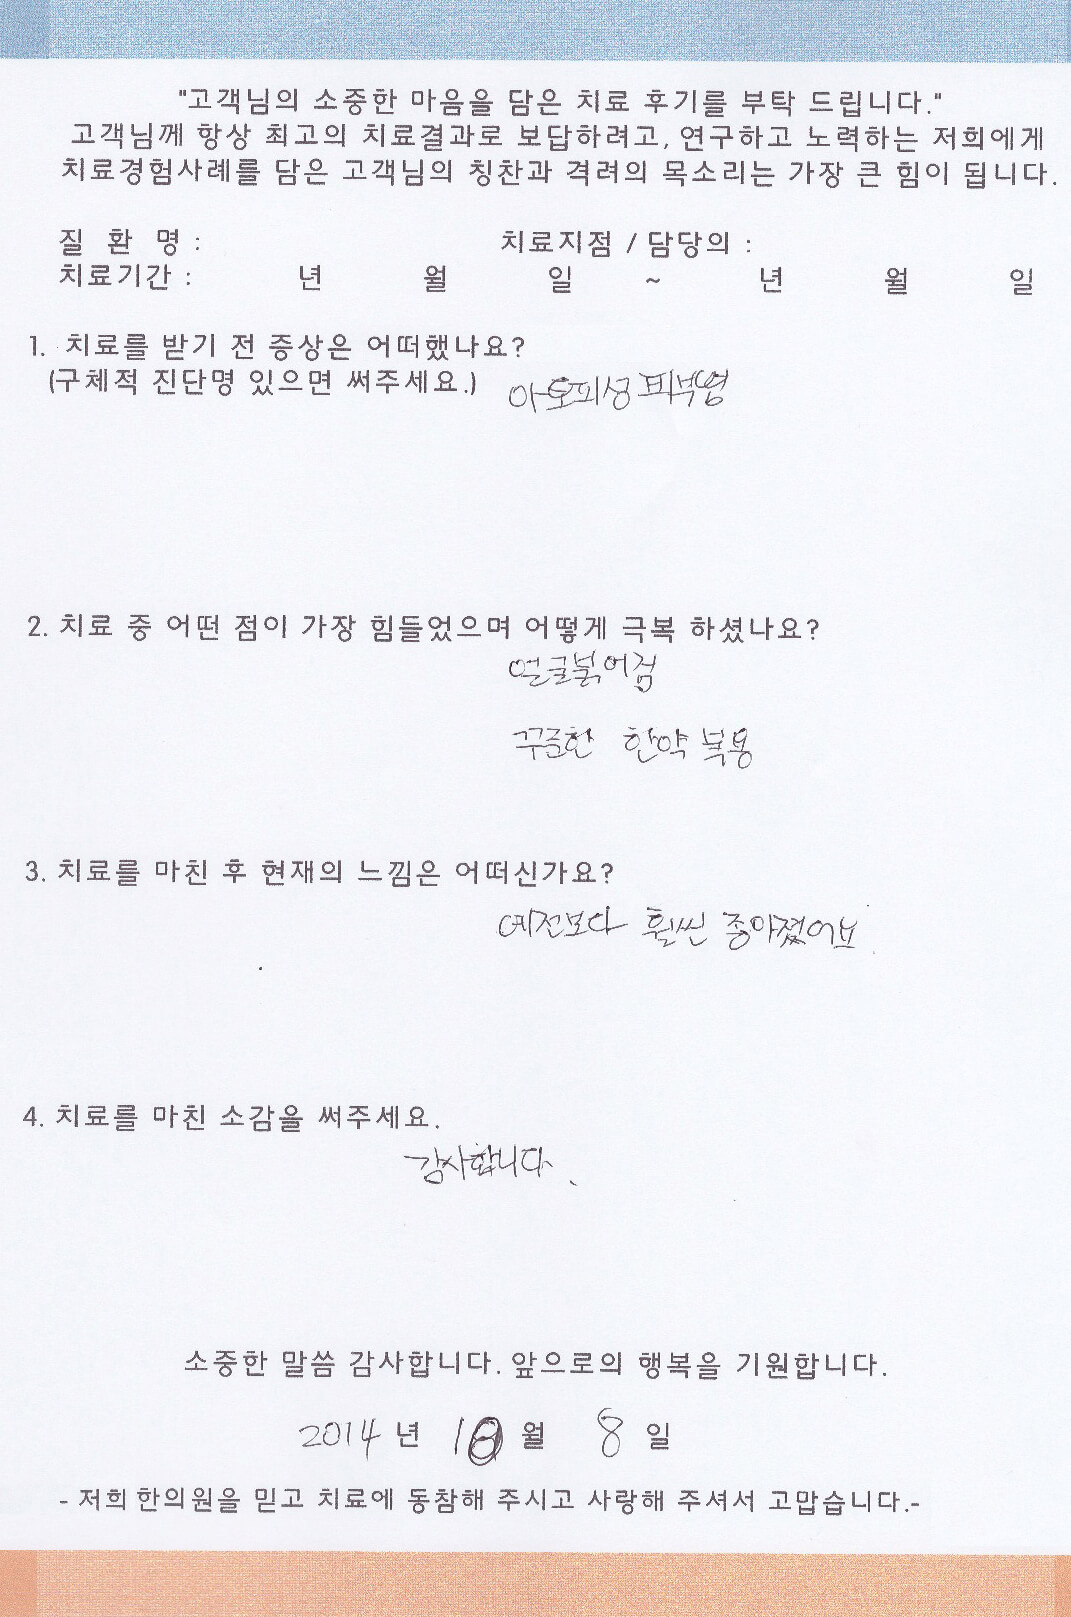 "고객님의 소중한 마음을 담은 치료 후기를 부탁 드립니다."
고객님께 항상 최고의 치료결과로 보답하려고, 연구하고 노력하는 저희에게
치료경험사례를 담은 고객님의 칭찬과 격려의 목소리는 가장 큰 힘이 됩니다.
질 환 명 : 치료지점 / 담당의 :
치료기간 : 년 월 일 ~ 년 월 일
1. 치료를 받기 전 증상은 어떠했나요?
(구체적 진단명 있으면 써주세요.) 아토피성 피부염
2. 치료 중 어떤 점이 가장 힘들었으며 어떻게 극복 하셨나요?
얼굴붉어짐
꾸준한 한약 복용
3. 치료를 마친 후 현재의 느낌은 어떠신가요?
예전보다 훨씬 좋아졌어요
4. 치료를 마친 소감을 써주세요.
감사합니다.
소중한 말씀 감사합니다. 앞으로의 행복을 기원합니다.
2014 년 10 월 8 일
- 저희 한의원을 믿고 치료에 동참해 주시고 사랑해 주셔서 고맙습니다.-